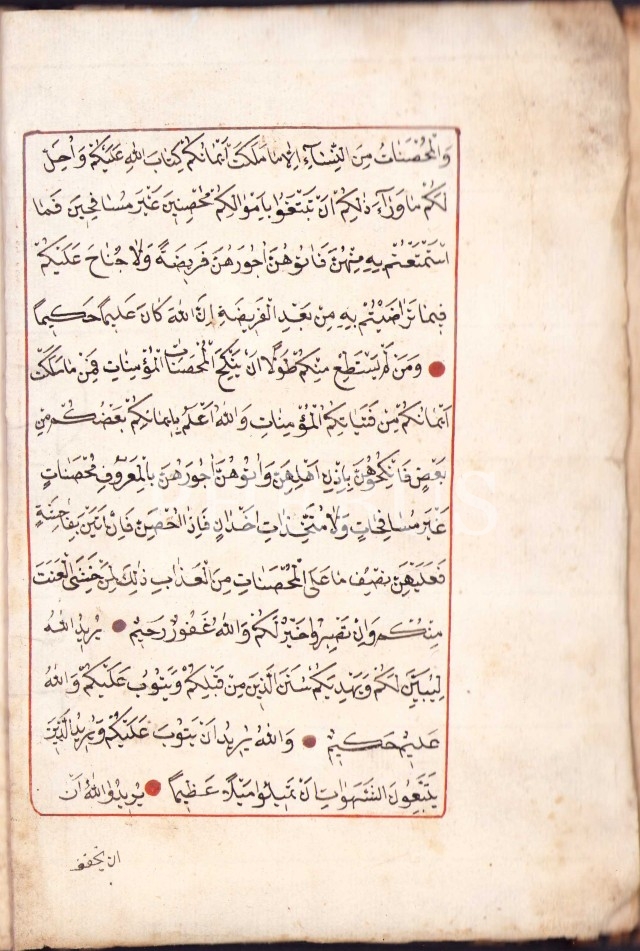 وَالْمُحْصَنَاتُ مِنَ النِّسَآءِ اِلَّا مَا مَلَكَتْ اَيْمَانُكُمْ كِتَابَ اللهِ عَلَيْكُمْ وَاُحِلَّ
لَكُمْ مَا وَرَآءَ ذٰلِكُمْ اَنْ تَبْتَغُوا بِاَمْوَالِكُمْ مُحْصِنِينَ غَيْرَ مُسَافِحِينَ فَمَا
اسْتَمْتَعْتُمْ بِهِ مِنْهُنَّ فَاٰتُوهُنَّ اُجُورَهُنَّ فَرِيضَةً وَلَا جُنَاحَ عَلَيْكُمْ
فِيمَا تَرَاضَيْتُمْ بِهِ مِنْ بَعْدِ الْفَرِيضَةِ اِنَّ اللهَ كَانَ عَلِيمًا حَكِيمًا
وَمَنْ لَمْ يَسْتَطِعْ مِنْكُمْ طَوْلًا اَنْ يَنْكِحَ الْمُحْصَنَاتِ الْمُؤْمِنَاتِ فَمِنْ مَا مَلَكَتْ
اَيْمَانُكُمْ مِنْ فَتَيَاتِكُمُ الْمُؤْمِنَاتِ وَاللهُ اَعْلَمُ بِاِيمَانِكُمْ بَعْضُكُمْ مِنْ
بَعْضٍ فَانْكِحُوهُنَّ بِاِذْنِ اَهْلِهِنَّ وَاٰتُوهُنَّ اُجُورَهُنَّ بِالْمَعْرُوفِ مُحْصَنَاتٍ
غَيْرَ مُسَافِحَاتٍ وَلَا مُتَّخِذَاتِ اَخْدَانٍ فَاِذَا اُحْصِنَّ فَاِنْ اَتَيْنَ بِفَاحِشَةٍ
فَعَلَيْهِنَّ نِصْفُ مَا عَلَى الْمُحْصَنَاتِ مِنَ الْعَذَابِ ذٰلِكَ لِمَنْ خَشِيَ الْعَنَتَ
مِنْكُمْ وَاِنْ تَصْبِرُوا خَيْرٌ لَكُمْ وَاللهُ غَفُورٌ رَحِيمٌ يُرِيدُ اللهُ
لِيُبَيِّنَ لَكُمْ وَيَهْدِيَكُمْ سُنَنَ الَّذِينَ مِنْ قَبْلِكُمْ وَيَتُوبَ عَلَيْكُمْ وَاللهُ
عَلِيمٌ حَكِيمٌ وَاللهُ يُرِيدُ اَنْ يَتُوبَ عَلَيْكُمْ وَيُرِيدُ الَّذِينَ
يَتَّبِعُونَ الشَّهَوَاتِ اَنْ تَمِيلُوا مَيْلًا عَظِيمًا يُرِيدُ اللهُ اَنْ
ان يخفف